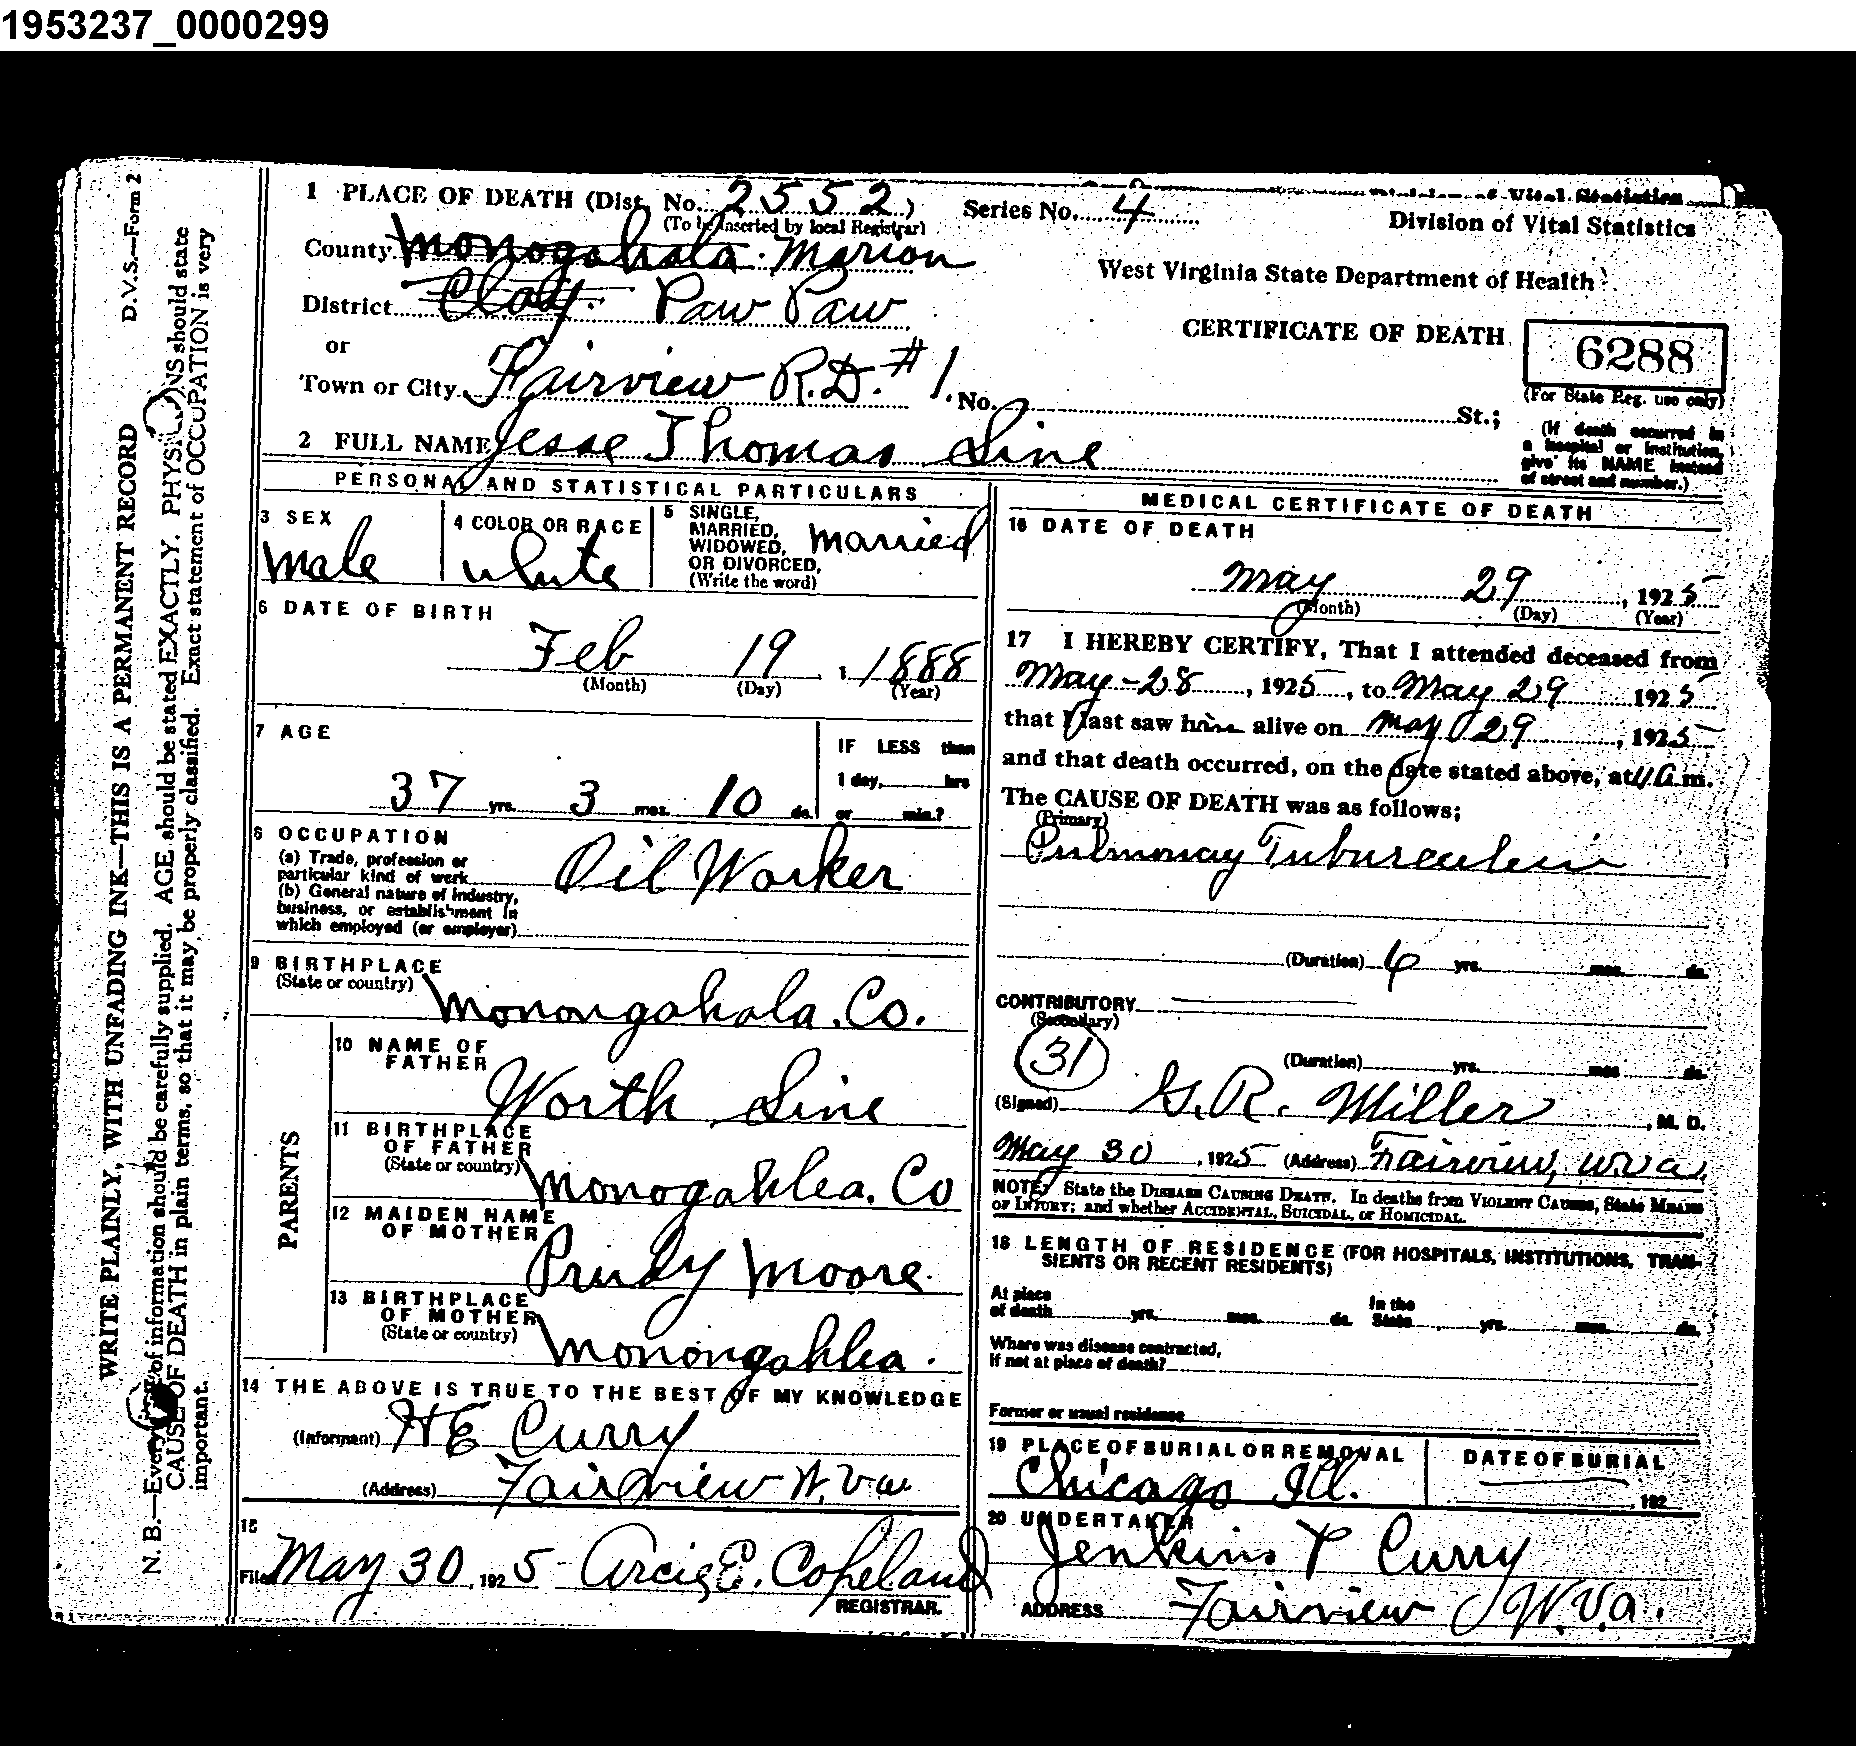 1953237_0000299
D.V.S.—Form 2
WRITE PLAINLY, WITH UNFADING INK—THIS IS A PERMANENT RECORD
N. B.—Every item of information should be carefully supplied. AGE should be stated EXACTLY. PHYSICIANS should state
CAUSE OF DEATH in plain terms, so that it may be properly classified. Exact statement of OCCUPATION is very
important.
1 PLACE OF DEATH (Dist. No. 2552)
(To be inserted by local Registrar)
Series No. 4
Division of Vital Statistics
Division of Vital Statistics
County Monogahala. Marion
West Virginia State Department of Health
District Clay. Paw Paw
or
CERTIFICATE OF DEATH
6288
(For State Reg. use only)
Town or City Fairview R.D. # 1. No. St.;
(If death occurred in
a hospital or institution,
give its NAME instead
of street and number.)
2 FULL NAME Jesse Thomas Sine
PERSONAL AND STATISTICAL PARTICULARS
3 SEX
male
4 COLOR OR RACE
white
5 SINGLE,
MARRIED,
WIDOWED,
OR DIVORCED,
(Write the word)
married
6 DATE OF BIRTH
Feb 19, 1888
(Month) (Day) (Year)
7 AGE
37 yrs. 3 mos. 10 ds.
IF LESS than
1 day, hrs
or min.?
8 OCCUPATION
(a) Trade, profession or
particular kind of work
Oil Worker
(b) General nature of industry,
business, or establishment in
which employed (or employer)
9 BIRTHPLACE
(State or country)
Monongahala. Co.
PARENTS
10 NAME OF
FATHER
Worth Sine
11 BIRTHPLACE
OF FATHER
(State or country)
Monogahlea. Co
12 MAIDEN NAME
OF MOTHER
Prudy Moore.
13 BIRTHPLACE
OF MOTHER
(State or country)
Monongahlea.
14 THE ABOVE IS TRUE TO THE BEST OF MY KNOWLEDGE
(Informant) H E Curry
(Address) Fairview W. Va.
15
Filed May 30, 1925 Arcie E. Copeland
REGISTRAR.
MEDICAL CERTIFICATE OF DEATH
16 DATE OF DEATH
May 29, 1925
(Month) (Day) (Year)
17 I HEREBY CERTIFY, That I attended deceased from
May-28, 1925, to May 29 1925
that I last saw him alive on May 29, 1925
and that death occurred, on the date stated above, at 4 a.m.
The CAUSE OF DEATH was as follows;
(Primary)
Pulmonay Tuburculin
(Duration) 6 yrs. mos. ds.
CONTRIBUTORY
(Secondary)
31
(Duration) yrs. mos. ds.
(Signed) G. R. Miller, M. D.
May 30, 1925 (Address) Fairview, W.Va.
NOTE: State the DISEASE CAUSING DEATH. In deaths from VIOLENT CAUSES, State MEANS
OF INJURY; and whether ACCIDENTAL, SUICIDAL, or HOMICIDAL.
18 LENGTH OF RESIDENCE (FOR HOSPITALS, INSTITUTIONS, TRAN-
SIENTS OR RECENT RESIDENTS)
At place
of death yrs. mos. ds.
In the
State yrs. mos. ds.
Where was disease contracted,
if not at place of death?
Former or usual residence
19 PLACE OF BURIAL OR REMOVAL
Chicago Ill.
DATE OF BURIAL
, 192
20 UNDERTAKER
Jenkins & Curry
ADDRESS Fairview W.Va.